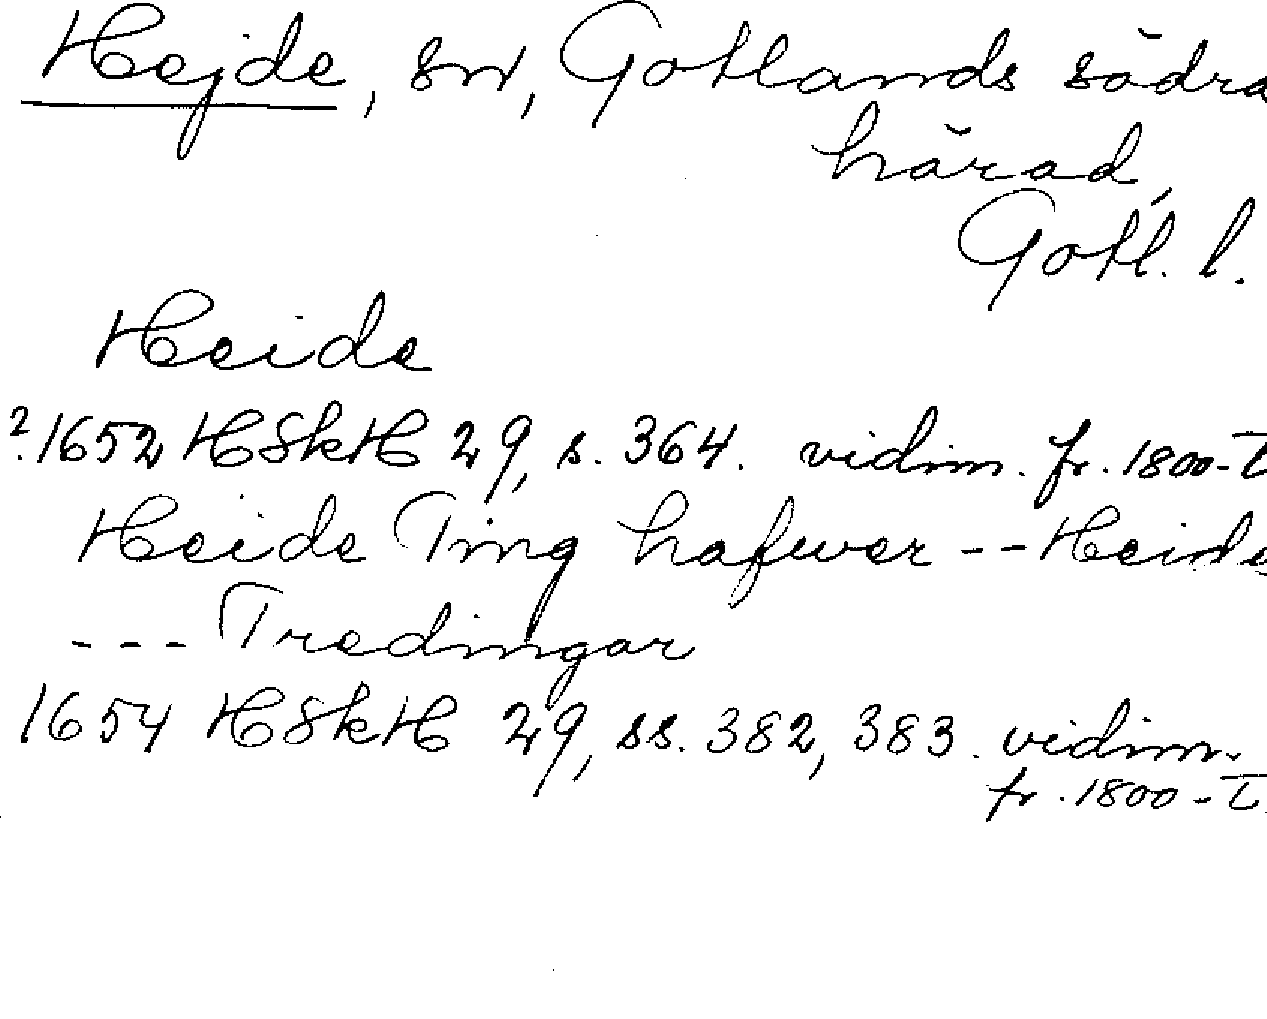 Hejde, sn, Gotlands södra
härad,
Gotl. l.
Heide
?1652 HSkH 29, s. 364. vidim. fr. 1800-t
Heide Ting hafwer -- Heide
--- Tredingar
1654 HSkH 29, ss. 382, 383. vidim.
fr. 1800-t